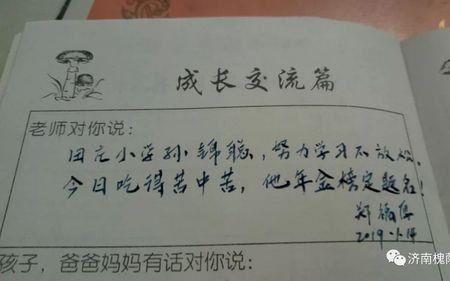 成长交流篇
老师对你说:
田庄小学孙锦聪,努力学习不放松,
今日吃得苦中苦,他年金榜定题名!
郑
2019.1.14
孩子,爸爸妈妈有话对你说:
济南槐荫